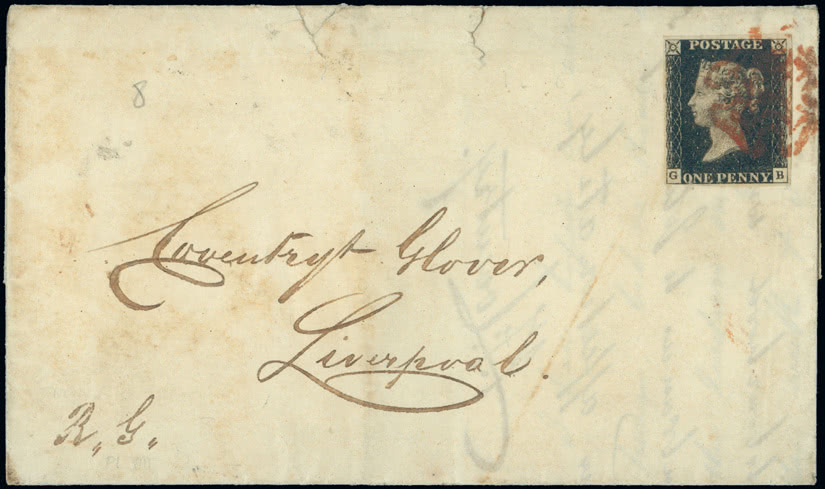 8
POSTAGE
G B
ONE PENNY.
Coventry & Glover,
Liverpool.
R,, G,,